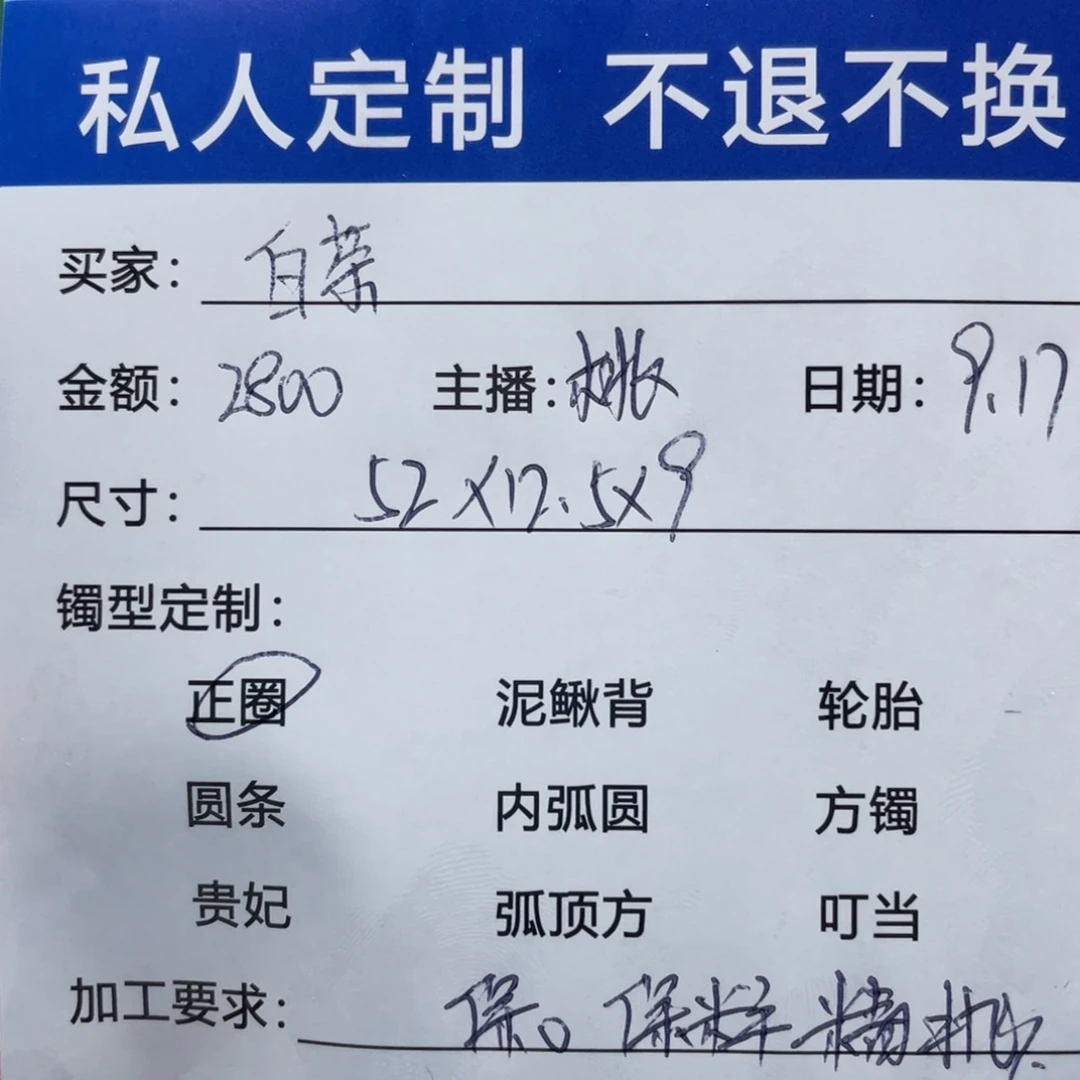 私人定制 不退不换
买家：白菜
金额：2800 主播：桃 日期：9.17
尺寸：52×12.5×9
镯型定制：
正圈 泥鳅背 轮胎
圆条 内弧圆 方镯
贵妃 弧顶方 叮当
加工要求：保